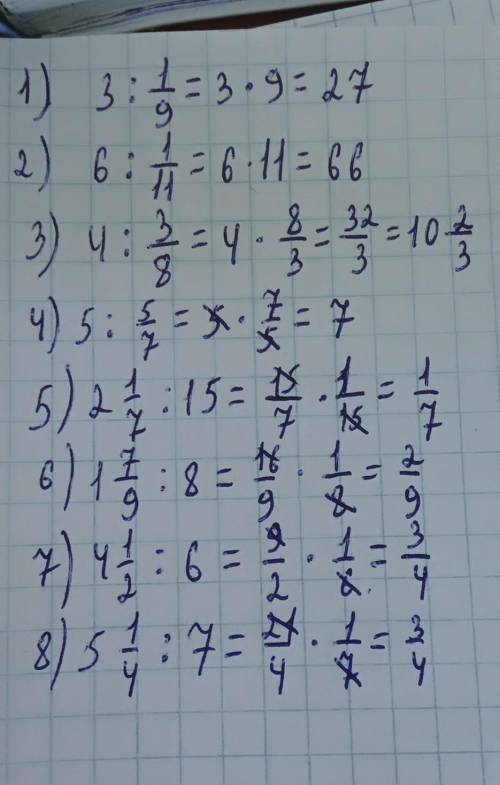 1) 3 : 1/9 = 3 · 9 = 27
2) 6 : 1/11 = 6 · 11 = 66
3) 4 : 3/8 = 4 · 8/3 = 32/3 = 10 2/3
4) 5 : 5/7 = 5 · 7/5 = 7
5) 2 1/7 : 15 = 15/7 · 1/15 = 1/7
6) 1 7/9 : 8 = 16/9 · 1/8 = 2/9
7) 4 1/2 : 6 = 9/2 · 1/6 = 3/4
8) 5 1/4 : 7 = 21/4 · 1/7 = 3/4